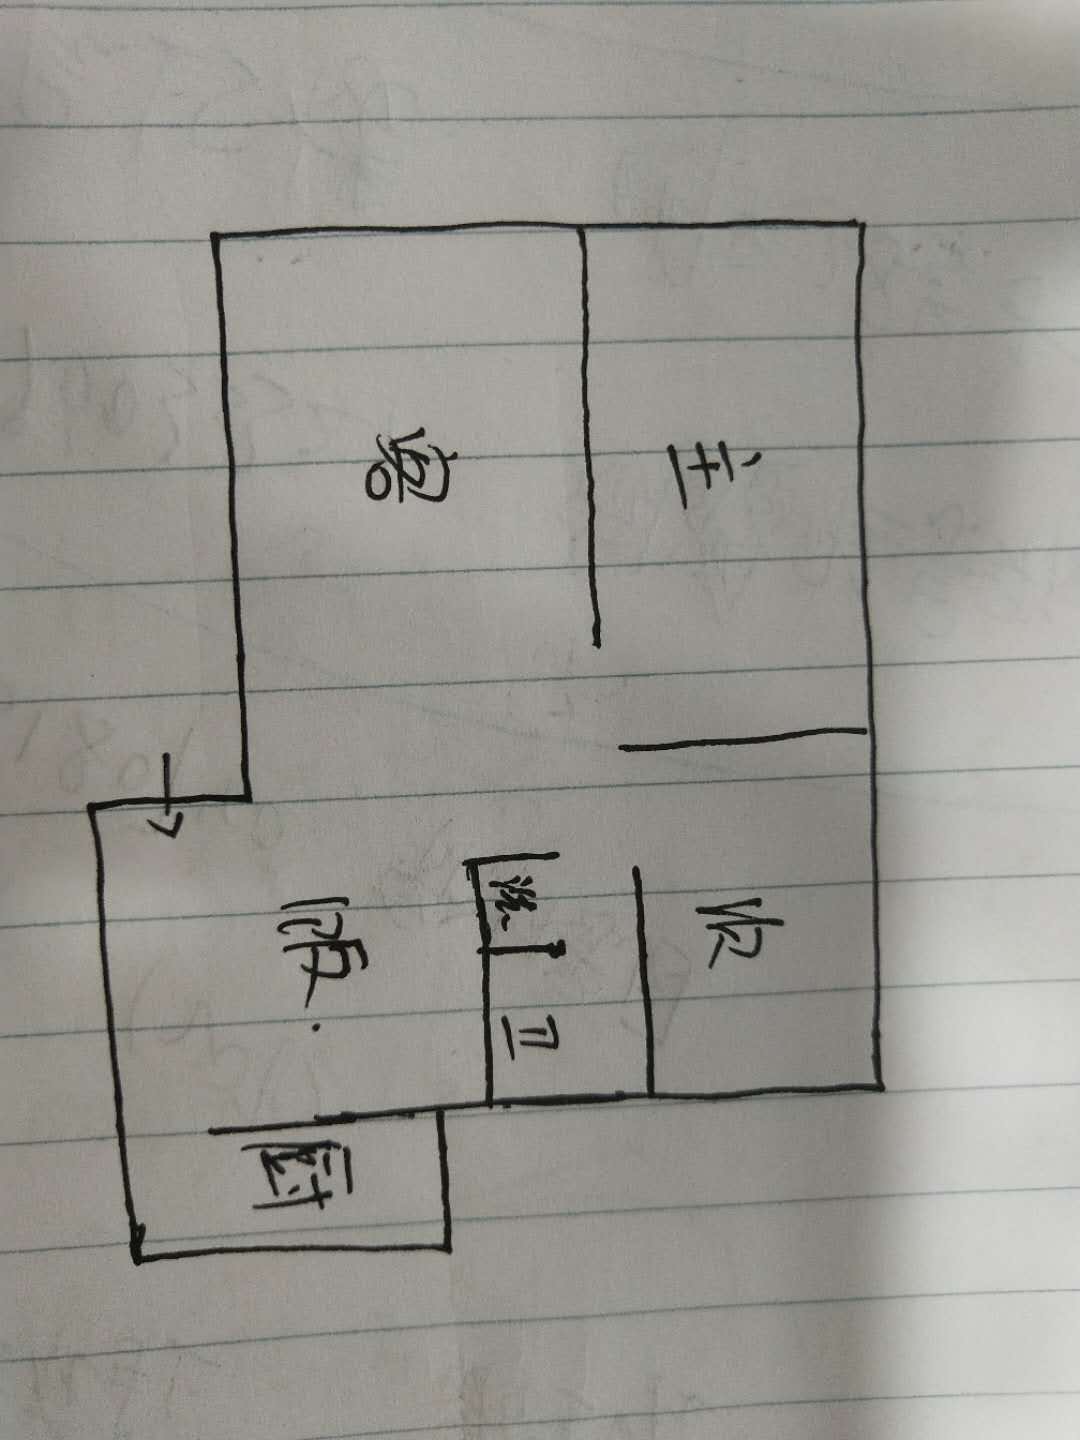 主
次
洗
卫
客
饭
厨